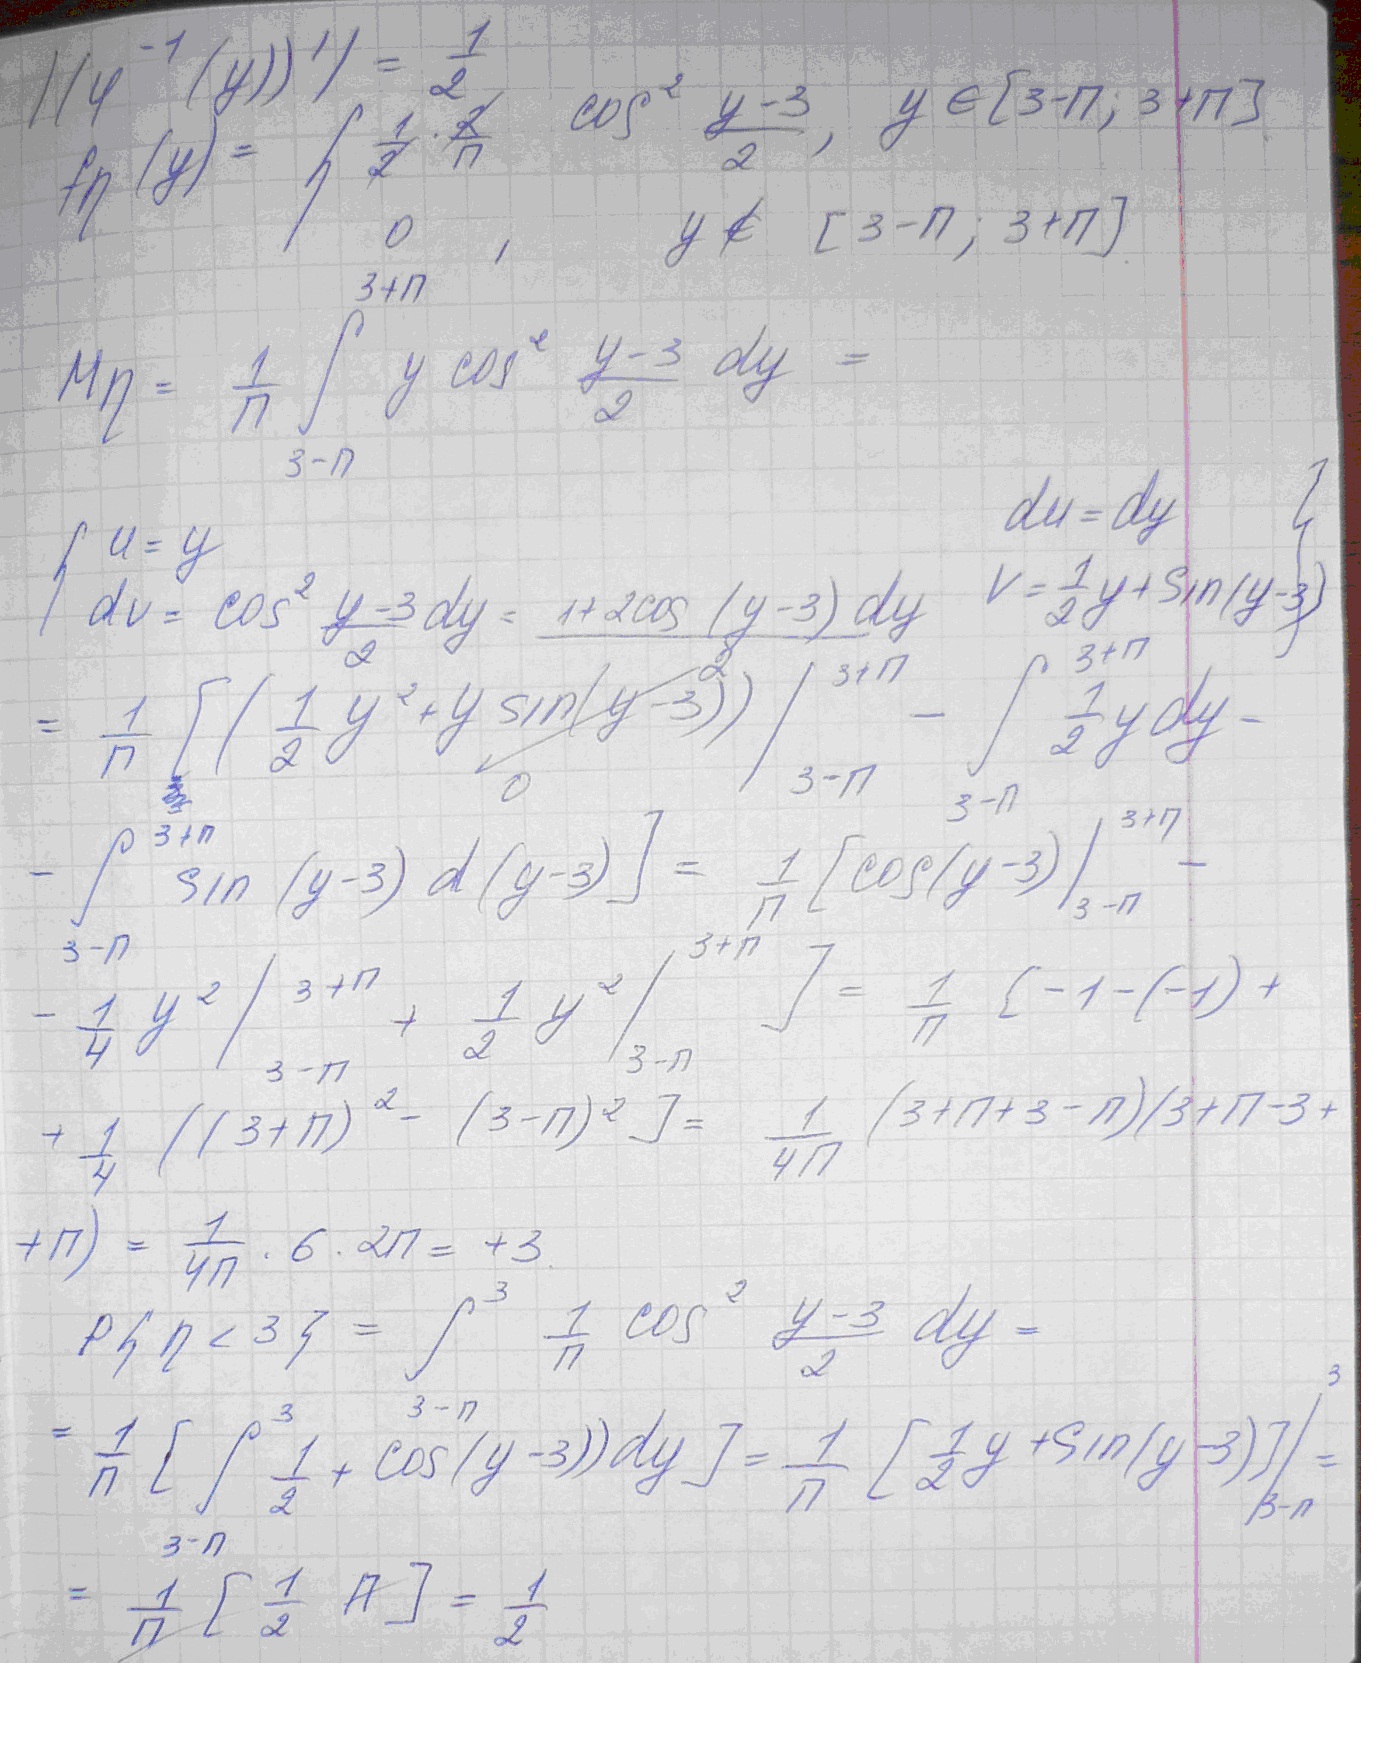 |(φ⁻¹(y))'| = 1/2
fη(y) = { 1/2 · 2/π cos² (y-3)/2, y ∈ [3-π; 3+π]
0, y ∉ [3-π; 3+π]
Mη = 1/π ∫_{3-π}^{3+π} y cos² (y-3)/2 dy =
{ u = y du = dy }
dv = cos² (y-3)/2 dy = (1+2cos(y-3))/2 dy v = 1/2 y + sin(y-3)
= 1/π [(1/2 y² + y sin(y-3))|_{3-π}^{3+π} - ∫_{3-π}^{3+π} 1/2 y dy -
0
- ∫_{3-π}^{3+π} sin(y-3) d(y-3)] = 1/π [cos(y-3)|_{3-π}^{3+π} -
- 1/4 y²|_{3-π}^{3+π} + 1/2 y²|_{3-π}^{3+π}] = 1/π [-1-(-1) +
+ 1/4 ((3+π)² - (3-π)²] = 1/4π (3+π+3-π)(3+π-3+
+π) = 1/4π · 6 · 2π = +3
P{η < 3} = ∫_{3-π}^{3} 1/π cos² (y-3)/2 dy =
= 1/π [∫_{3-π}^{3} 1/2 + cos(y-3)) dy] = 1/π [1/2 y + sin(y-3)]|_{3-π}^{3} =
= 1/π [1/2 π] = 1/2